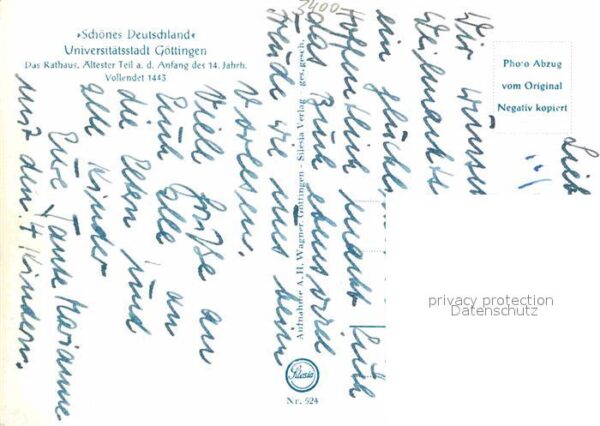 »Schönes Deutschland«
Universitätsstadt Göttingen
Das Rathaus. Ältester Teil a. d. Anfang des 14. Jahrh.
Vollendet 1443
3400
Photo Abzug
vom Original
Negativ kopiert
Aufnahme A. H. Wagner, Göttingen - Silesia Verlag ges. gesch.
Silesia
Nr. 524
privacy protection
Datenschutz
Wir wünsch
Weihnachts
ein glückl
Hoffentlich macht Euch
das Buch ebensoviel
Freude wie uns beim
Vorlesen.
Viele Grüße an
Euch alle an
die Eltern und
alle Kinder
Eure Tante Marianne
mit den 4 Kindern.